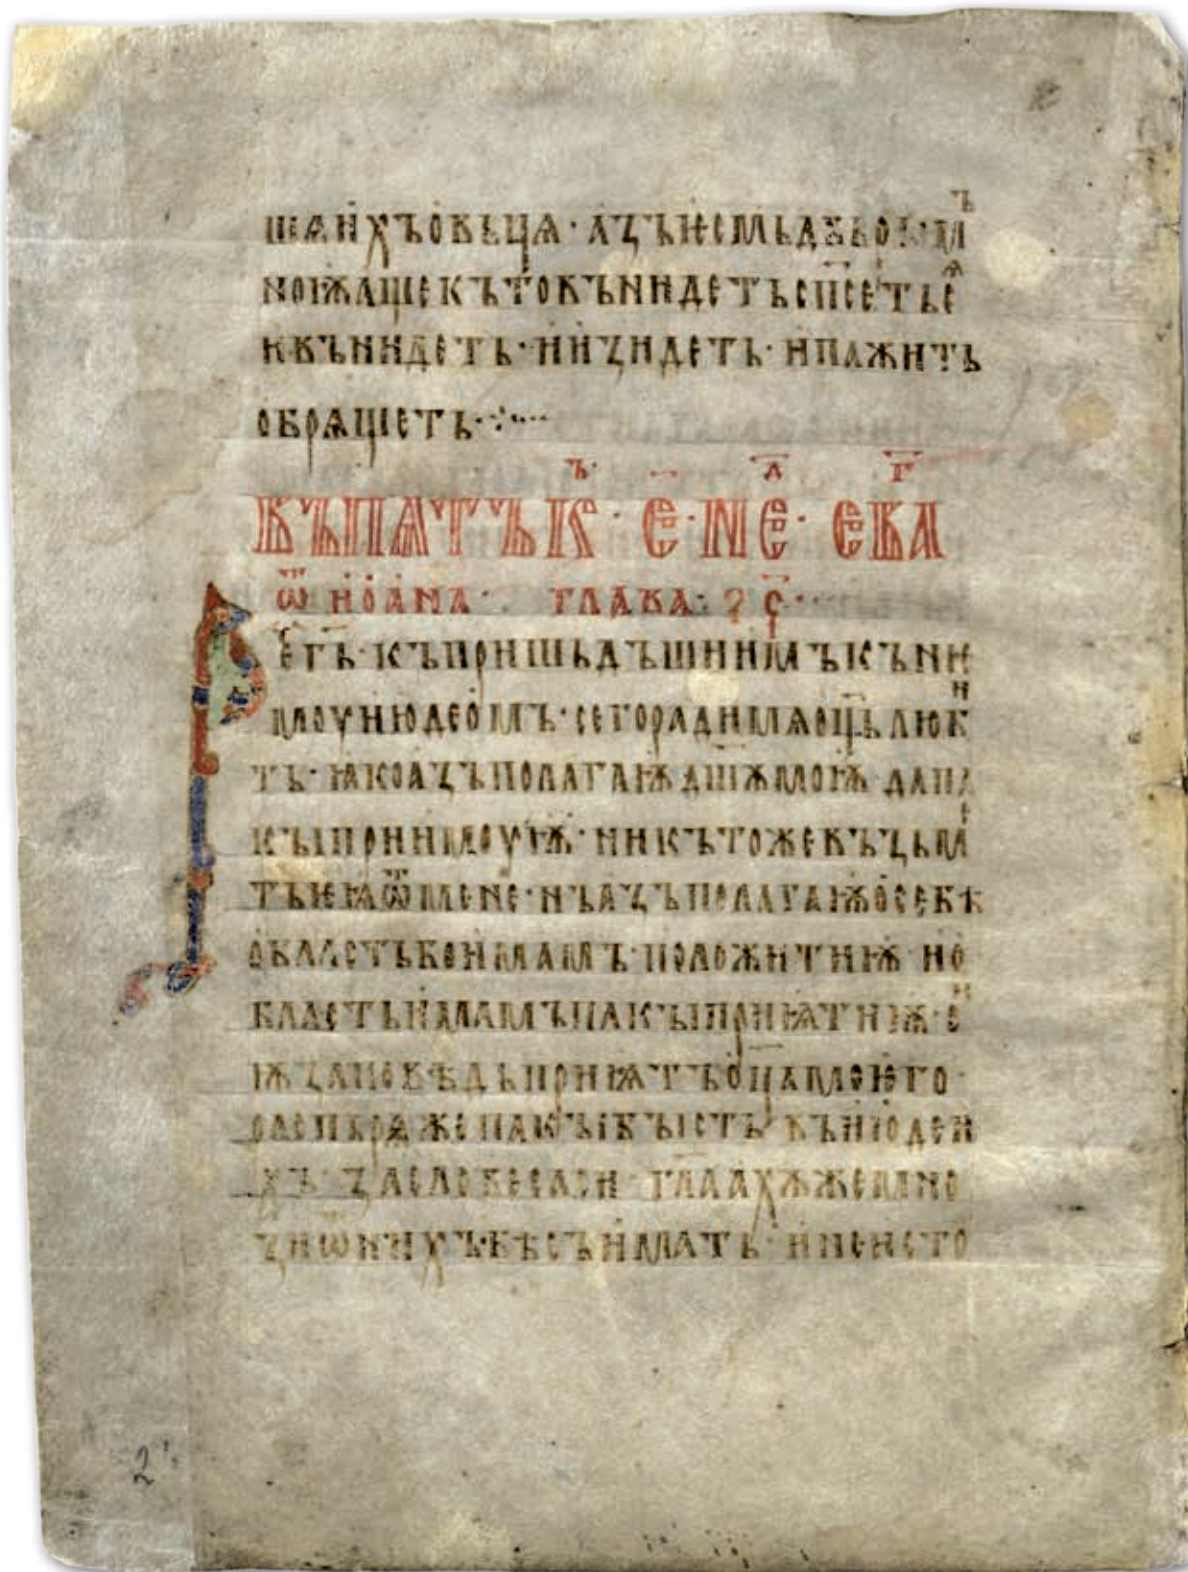 шѧ ихъ овьцѧ · азъ ѥсмь двьрь · мъ
ноѭ аще къто вънидеть сп҃сеть сѧ
и вънидеть · и изидеть · и пажить
обрѧщеть ·
въ пѧтъкъ · е҃ · не҃л · ева҃г
ѿ иоана · глава · ч҃ ·
Рет҃ь · къ пришьдъшиимъ къ не
моу июдеомъ · сего ради мѧ оц҃ь люби
ть · ꙗко азъ полагаѭ дш҃ѫ моѭ да па
кы приимоу ѭ · никътоже въꙁ̑ьме
ть ѥѩ ѿ мене · нъ азъ полагаѭ о себѣ
область бо имамъ · положити ѭ · и о
бласть имамъ пакы приѩти ѭ · си
ѭ заповѣдь приѩтъ ѿц҃а моѥго ·
распьрѧ же пакы бысть въ июдеи
хъ · за словеса си · гл҃аахѫ же мно
зи ѿ нихъ · бѣсъ имать · и неисто
2